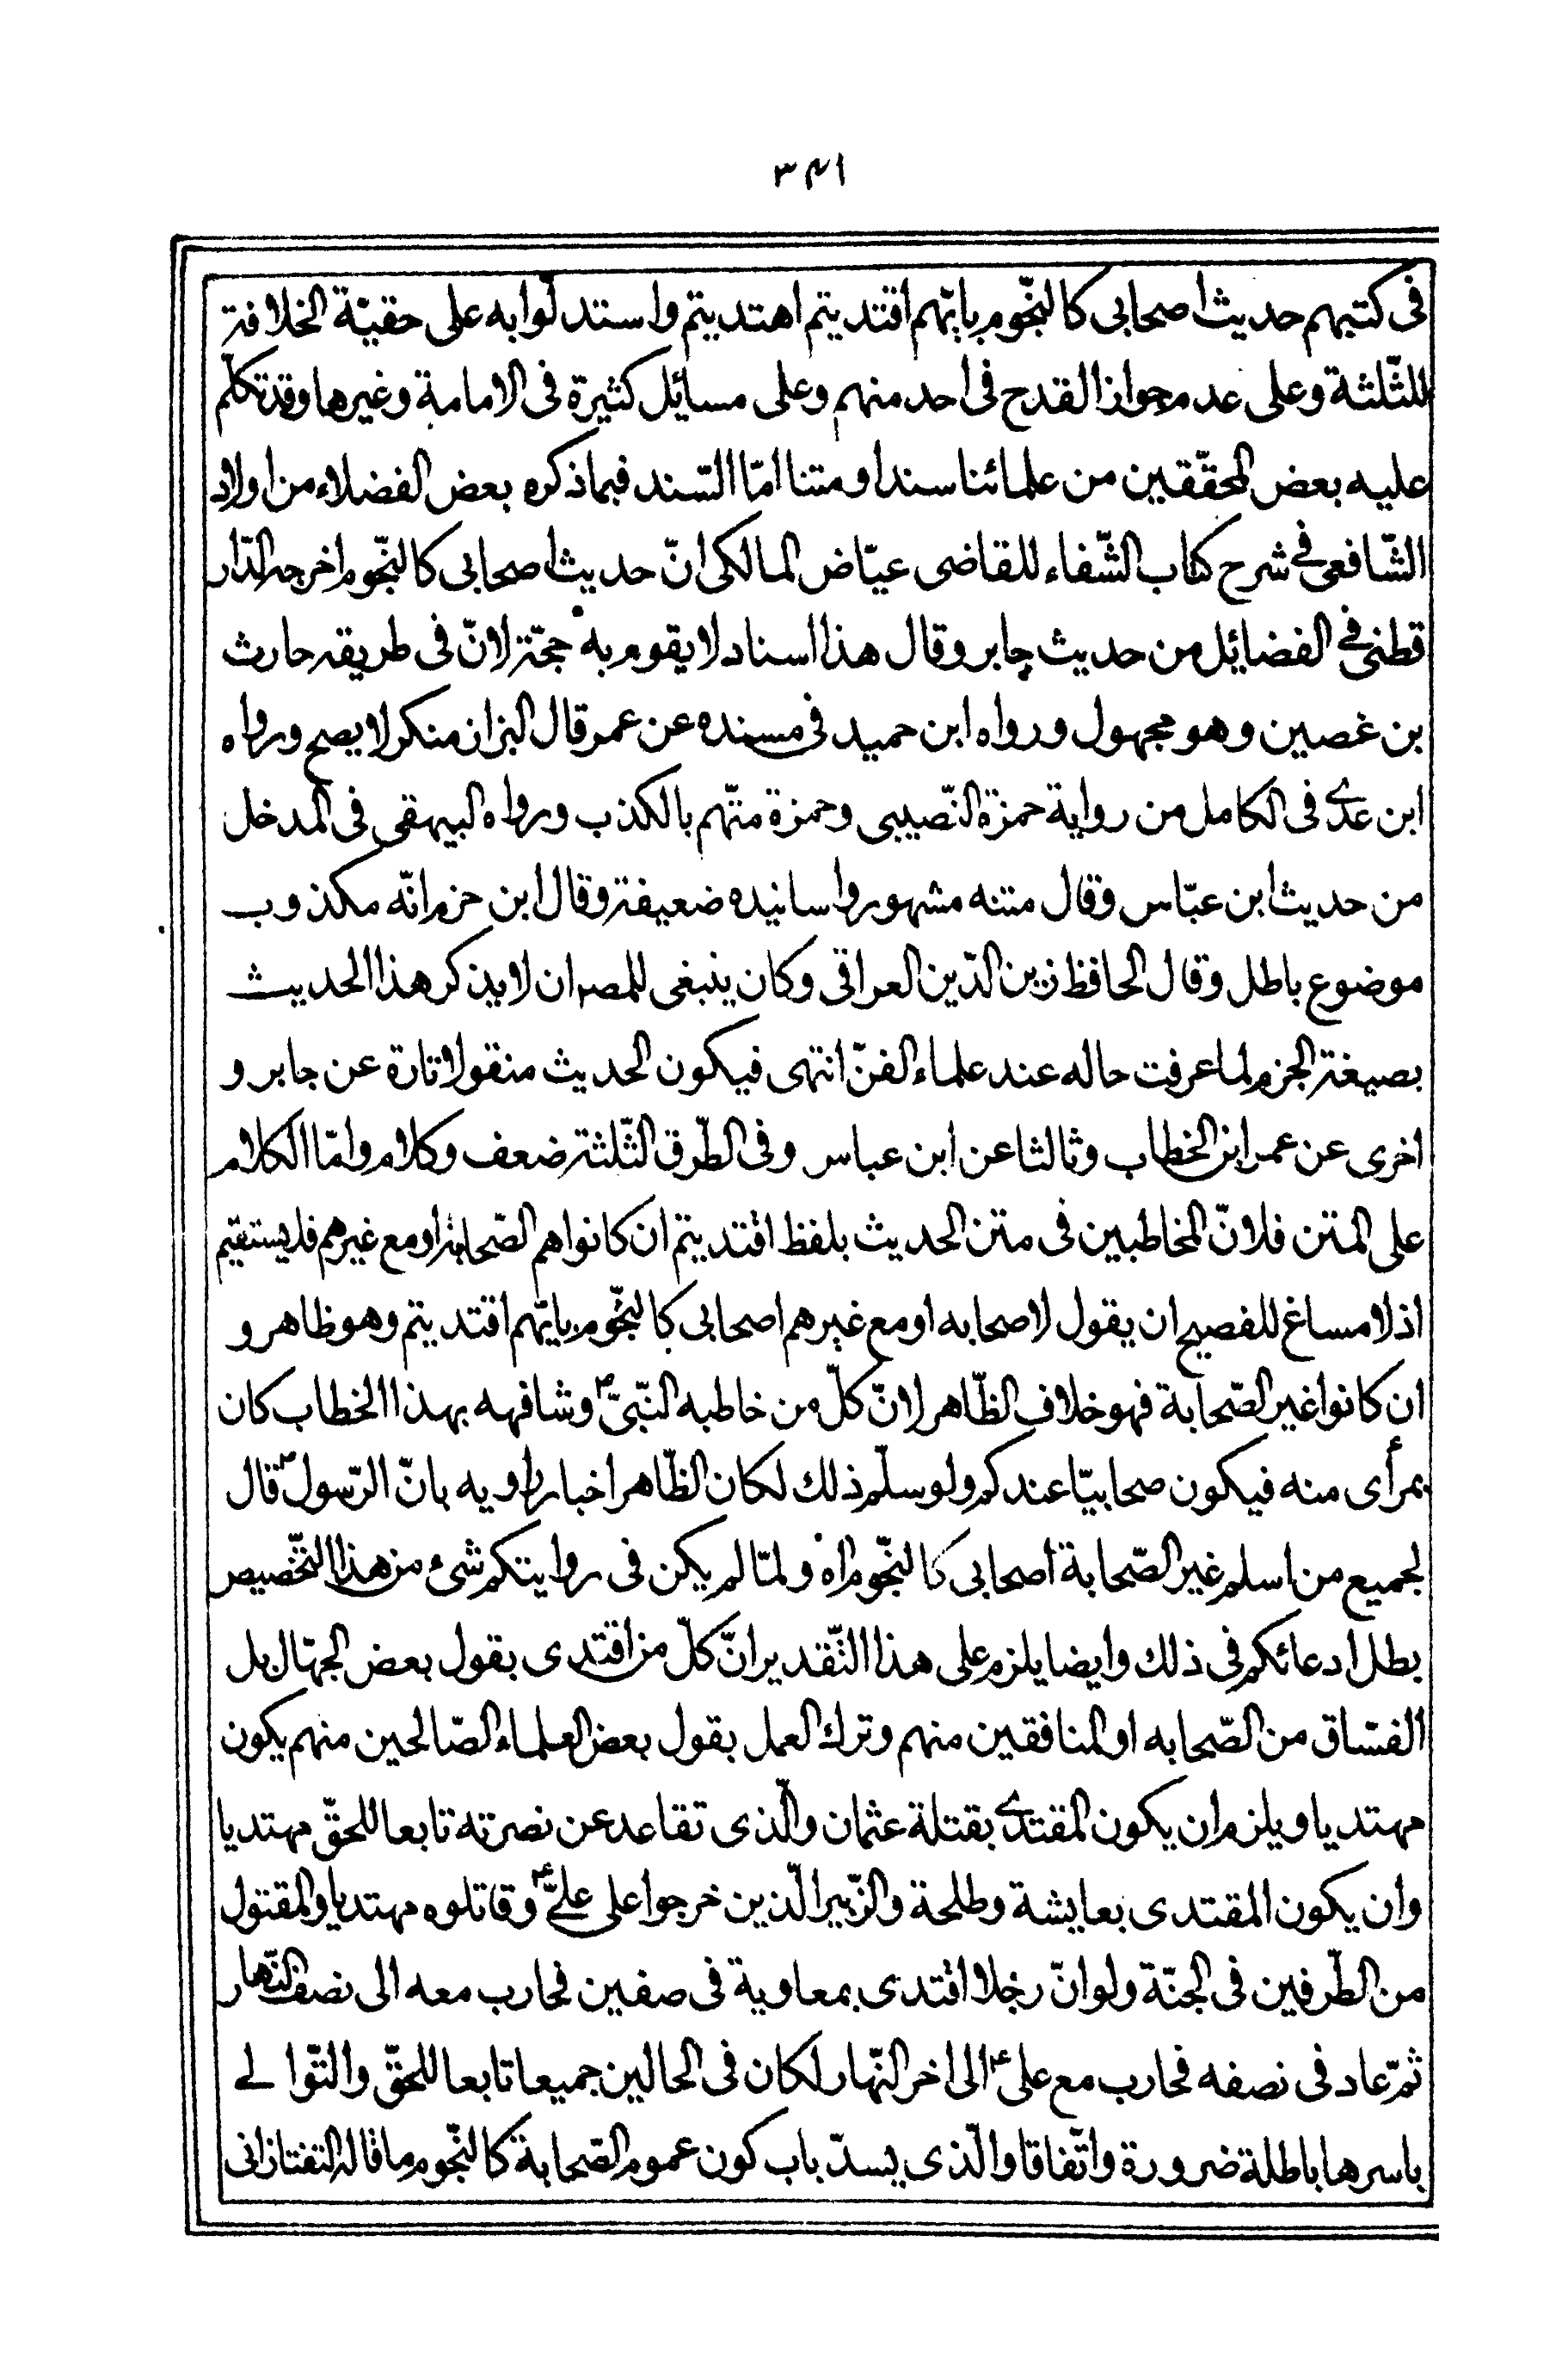 ٣٤١
فى كتبهم حديث اصحابى كالنّجوم بايّهم اقتديتم اهتديتم واستدلّوا به على حقيّة الخلافة
للثّلثة وعلى عدم جواز القدح فى احد منهم وعلى مسائل كثيرة فى الامامة وغيرها وقد تكلّم
عليه بعض المحقّقين من علمائنا سندا ومتنا امّا السّند فبما ذكره بعض الفضلاء من اولاد
الشّافعى فى شرح كتاب الشّفاء للقاضى عيّاض المالكى انّ حديث اصحابى كالنّجوم اخرجه الدّار
قطنى فى الفضايل من حديث جابر وقال هذا اسناد لا يقوم به حجّة لانّ فى طريقه حارث
بن غصين وهو مجهول ورواه ابن حميد فى مسنده عن عمر قال البزار منكر لا يصح ورواه
ابن عدى فى الكامل من رواية حمزة النّصيبى وحمزة متّهم بالكذب ورواه البيهقى فى المدخل
من حديث ابن عبّاس وقال متنه مشهور واسانيده ضعيفة وقال ابن حزم انّه مكذوب
موضوع باطل وقال الحافظ زين الدّين العراقى وكان ينبغى للمصه ان لا يذكر هذا الحديث
بصيغة الجزم لما عرفت حاله عند علماء الفنّ انتهى فيكون الحديث منقولا تارة عن جابر و
اخرى عن عمر ابن الخطاب وثالثا عن ابن عباس وفى الطّرق الثّلثة ضعف وكلام وامّا الكلام
على المتن فلانّ المخاطبين فى متن الحديث بلفظ اقتديتم ان كانوا هم الصّحابة او مع غيرهم فلا يستقيم
اذ لا مساغ للفصيح ان يقول لاصحابه او مع غيرهم اصحابى كالنجّوم بايّهم اقتديتم وهو ظاهر و
ان كانوا غير الصّحابة فهو خلاف الظّاهر لانّ كلّ من خاطبه النّبىّ ص وشافهه بهذا الخطاب كان
بمرأى منه فيكون صحابيّا عندكم ولو سلّم ذلك لكان الظّاهر اخبار راويه بانّ الرّسول ص قال
لجميع من اسلم غير الصّحابة اصحابى كالنّجوم اه ولمّا لم يكن فى روايتكم شىء من هذا التّخصيص
بطل ادعائكم فى ذلك وايضا يلزم على هذا التّقدير انّ كلّ من اقتدى بقول بعض الجهّال بل
الفسّاق من الصّحابه او المنافقين منهم وترك العمل بقول بعض العلماء الصّالحين منهم يكون
مهتديا ويلزم ان يكون المقتدى بقتلة عثمان والّذى تقاعد عن نصرته تابعا للحقّ مهتديا
وان يكون المقتدى بعايشة وطلحة والزّبير الّذين خرجوا على علىّ ع وقاتلوه مهتديا والمقتول
من الطّرفين فى الجنّة ولو انّ رجلا اقتدى بمعاوية فى صفين فحارب معه الى نصف النّهار
ثمّ عاد فى نصفه فحارب مع على ع الى اخر النّهار لكان فى الحالين جميعا تابعا للحقّ والتّوالى
باسرها باطلة ضرورة واتّفاقا والّذى يسدّ باب كون عموم الصّحابة كالنّجوم ما قاله التفتازانى